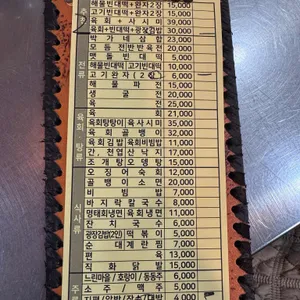 해물빈대떡+완자2장 15,000
고기빈대떡+완자2장 15,000
육회+사시미 39,000
육회+빈대떡+광장김밥 30,000
박가네삼합 23,000
모듬전반반육전 20,000
맷돌빈대떡 5,000
해물빈대떡 10,000 고기빈대떡 10,000
고기완자(2장) 6,000
해물파전 15,000
생굴전 20,000
육전 25,000
육회 21,000
육회탕탕이 육사시미 35,000
육회골뱅이 32,000
육회김밥 육회비빔밥 11,000
간,천엽 산낙지 17,000
조개탕 오뎅탕 15,000
오징어숙회 22,000
골뱅이소면 20,000
비빔밥 7,000
바지락칼국수 8,000
명태회냉면 육회냉면 11,000
잔치국수 6,000
광장김밥(2인) 떡볶이 5,000
순대계란찜 7,000
편육 13,000
직화닭발 15,000
느린마을 / 호랑이 / 동동주 6,000
소주 / 맥주 5,000
4,000
전류
육회·탕류
식사류
주류